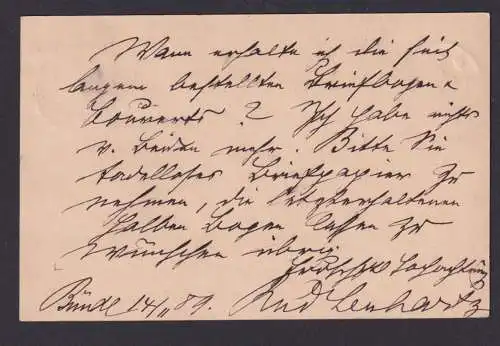 Wann erhalte ich die seit
langem bestellten Briefbogen &
Couverts? Ich habe nichts
v. Beiden mehr. Bitte Sie
tadelloses Briefpapier zu
nehmen, die letzterhaltenen
halben Bogen lassen zu
wünschen übrig.
Hochachtung
Bünde 14/11 89. Rud Lenhartz